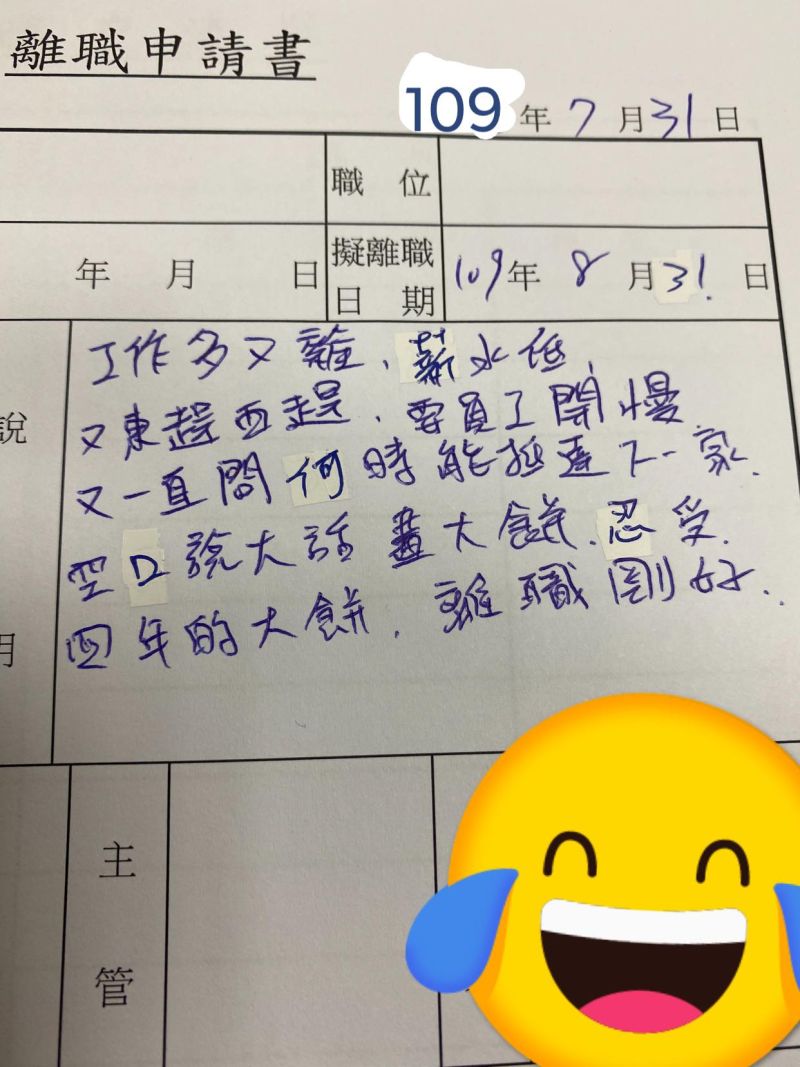 離職申請書
109年7月31日
職位
年 月 日 擬離職日期 109年8月31日
說
工作多又雜、薪水低、
又東趕西趕、要員工開慢
又一直問何時能抵達下一家、
空口說大話畫大餅、忍受、
四年的大餅、離職剛好、
明
主管